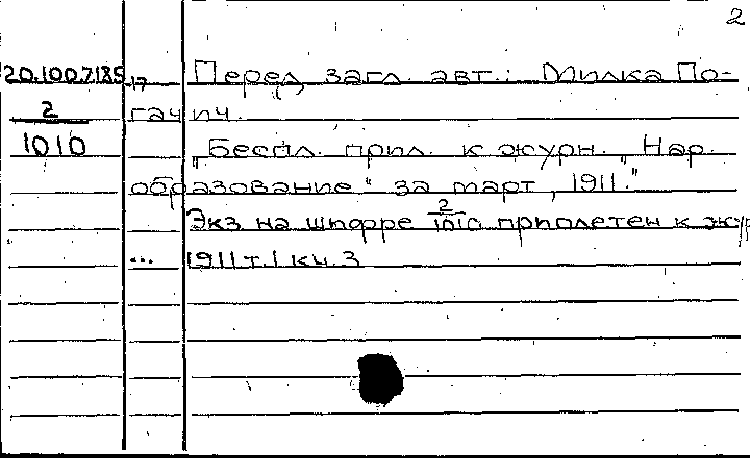 2
20.100.7.185,17 Перед загл. авт.: Милка По-
2 гачич.
1010 „Беспл. прил. к журн. „Нар.
образование" за март, 1911."
Экз на шифре 2/1010 приплетен к жур
... 1911 т.1 кн.3